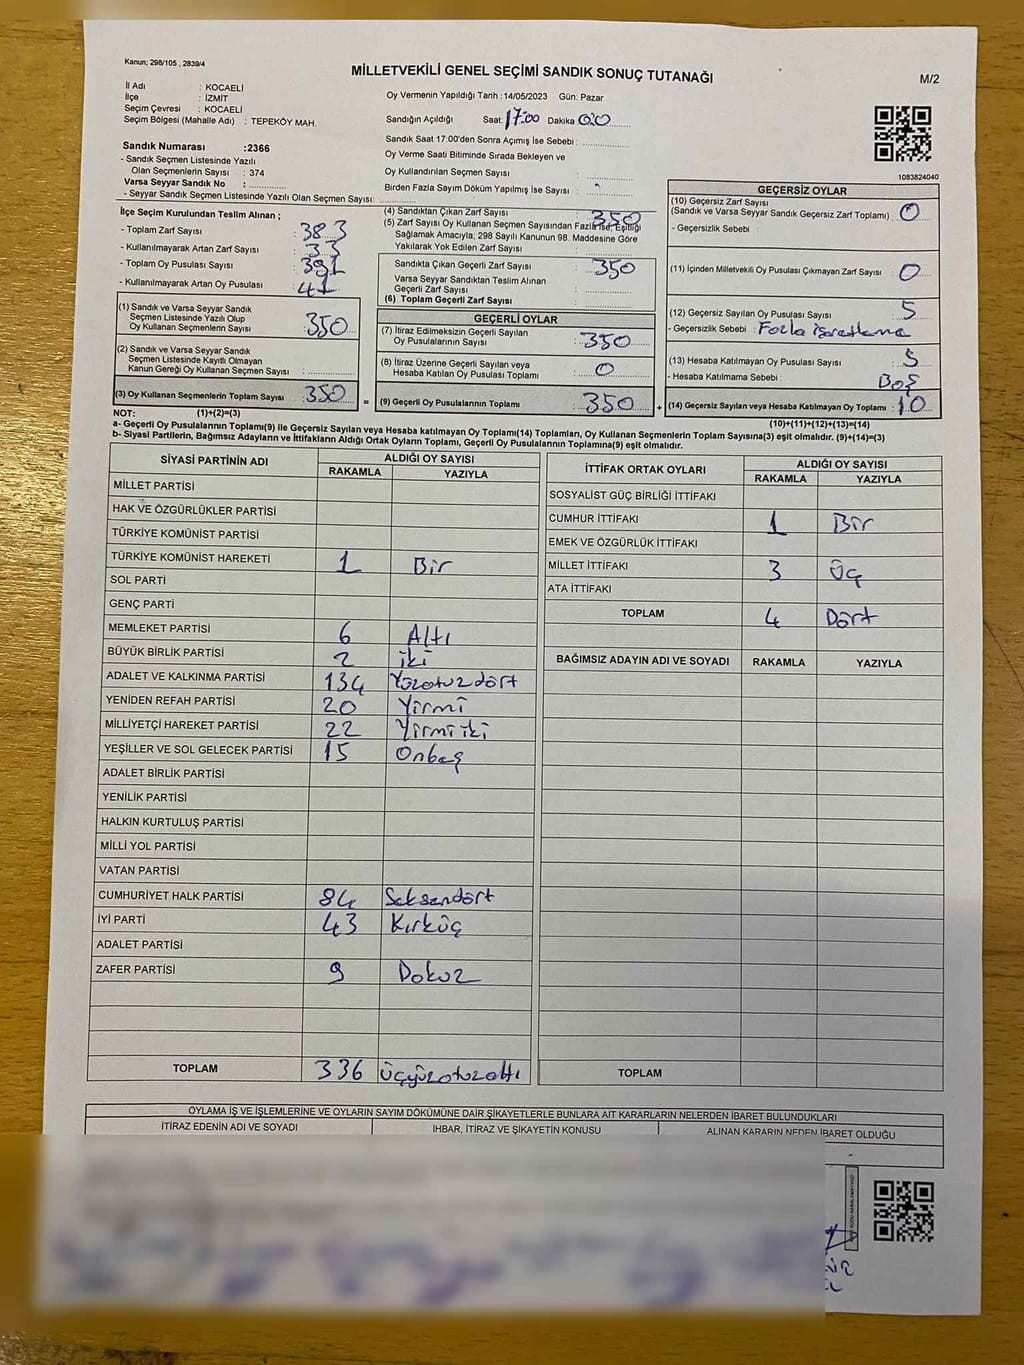 Kanun; 298/105 , 2839/4
MİLLETVEKİLİ GENEL SEÇİMİ SANDIK SONUÇ TUTANAĞI
M/2
İl Adı : KOCAELİ
İlçe : İZMİT
Seçim Çevresi : KOCAELİ
Seçim Bölgesi (Mahalle Adı) : TEPEKÖY MAH.
Oy Vermenin Yapıldığı Tarih :14/05/2023 Gün: Pazar
Sandığın Açıldığı Saat: 17:00 Dakika 00
Sandık Saat 17:00'den Sonra Açımış İse Sebebi :
Oy Verme Saati Bitiminde Sırada Bekleyen ve
Oy Kullandırılan Seçmen Sayısı :
Birden Fazla Sayım Döküm Yapılmış İse Sayısı :
1083824040
Sandık Numarası :2366
- Sandık Seçmen Listesinde Yazılı
Olan Seçmenlerin Sayısı : 374
Varsa Seyyar Sandık No :
- Seyyar Sandık Seçmen Listesinde Yazılı Olan Seçmen Sayısı:
İlçe Seçim Kurulundan Teslim Alınan ;
- Toplam Zarf Sayısı : 383
- Kullanılmayarak Artan Zarf Sayısı : 33
- Toplam Oy Pusulası Sayısı : 391
- Kullanılmayarak Artan Oy Pusulası : 41
(1) Sandık ve Varsa Seyyar Sandık
Seçmen Listesinde Yazılı Olup
Oy Kullanan Seçmenlerin Sayısı : 350
(2) Sandık ve Varsa Seyyar Sandık
Seçmen Listesinde Kayıtlı Olmayan
Kanun Gereği Oy Kullanan Seçmen Sayısı :
(3) Oy Kullanan Seçmenlerin Toplam Sayısı : 350 =
(4) Sandıktan Çıkan Zarf Sayısı : 350
(5) Zarf Sayısı Oy Kullanan Seçmen Sayısından Fazla ise, Eşitliği
Sağlamak Amacıyla; 298 Sayılı Kanunun 98. Maddesine Göre
Yakılarak Yok Edilen Zarf Sayısı :
Sandıkta Çıkan Geçerli Zarf Sayısı : 350
Varsa Seyyar Sandıktan Teslim Alınan
Geçerli Zarf Sayısı :
(6) Toplam Geçerli Zarf Sayısı :
GEÇERLİ OYLAR
(7) İtiraz Edilmeksizin Geçerli Sayılan
Oy Pusulalarının Sayısı : 350
(8) İtiraz Üzerine Geçerli Sayılan veya
Hesaba Katılan Oy Pusulası Toplamı : 0
(9) Geçerli Oy Pusulalarının Toplamı : 350 +
GEÇERSİZ OYLAR
(10) Geçersiz Zarf Sayısı
(Sandık ve Varsa Seyyar Sandık Geçersiz Zarf Toplamı) : 0
- Geçersizlik Sebebi :
(11) İçinden Milletvekili Oy Pusulası Çıkmayan Zarf Sayısı : 0
(12) Geçersiz Sayılan Oy Pusulası Sayısı : 5
- Geçersizlik Sebebi : Fazla işaretleme
(13) Hesaba Katılmayan Oy Pusulası Sayısı : 5
- Hesaba Katılmama Sebebi : Boş
(14) Geçersiz Sayılan veya Hesaba Katılmayan Oy Toplamı : 10
NOT: (1)+(2)=(3) (10)+(11)+(12)+(13)=(14)
a- Geçerli Oy Pusulalarının Toplamı(9) ile Geçersiz Sayılan veya Hesaba katılmayan Oy Toplamı(14) Toplamları, Oy Kullanan Seçmenlerin Toplam Sayısına(3) eşit olmalıdır. (9)+(14)=(3)
b- Siyasi Partilerin, Bağımsız Adayların ve İttifakların Aldığı Ortak Oyların Toplamı, Geçerli Oy Pusulalarının Toplamına(9) eşit olmalıdır.
SİYASİ PARTİNİN ADI ALDIĞI OY SAYISI
RAKAMLA YAZIYLA
MİLLET PARTİSİ
HAK VE ÖZGÜRLÜKLER PARTİSİ
TÜRKİYE KOMÜNİST PARTİSİ
TÜRKİYE KOMÜNİST HAREKETİ 1 Bir
SOL PARTİ
GENÇ PARTİ
MEMLEKET PARTİSİ 6 Altı
BÜYÜK BİRLİK PARTİSİ 2 iki
ADALET VE KALKINMA PARTİSİ 134 Yüzotuzdört
YENİDEN REFAH PARTİSİ 20 Yirmi
MİLLİYETÇİ HAREKET PARTİSİ 22 Yirmiiki
YEŞİLLER VE SOL GELECEK PARTİSİ 15 Onbeş
ADALET BİRLİK PARTİSİ
YENİLİK PARTİSİ
HALKIN KURTULUŞ PARTİSİ
MİLLİ YOL PARTİSİ
VATAN PARTİSİ
CUMHURİYET HALK PARTİSİ 84 Seksendört
İYİ PARTİ 43 Kırküç
ADALET PARTİSİ
ZAFER PARTİSİ 9 Dokuz
TOPLAM 336 üçyüzotuzaltı
İTTİFAK ORTAK OYLARI ALDIĞI OY SAYISI
RAKAMLA YAZIYLA
SOSYALİST GÜÇ BİRLİĞİ İTTİFAKI
CUMHUR İTTİFAKI 1 Bir
EMEK VE ÖZGÜRLÜK İTTİFAKI
MİLLET İTTİFAKI 3 Üç
ATA İTTİFAKI
TOPLAM 4 Dört
BAĞIMSIZ ADAYIN ADI VE SOYADI RAKAMLA YAZIYLA
TOPLAM
OYLAMA İŞ VE İŞLEMLERİNE VE OYLARIN SAYIM DÖKÜMÜNE DAİR ŞİKAYETLERLE BUNLARA AİT KARARLARIN NELERDEN İBARET BULUNDUKLARI
İTİRAZ EDENİN ADI VE SOYADI İHBAR, İTİRAZ VE ŞİKAYETİN KONUSU ALINAN KARARIN NEDEN İBARET OLDUĞU